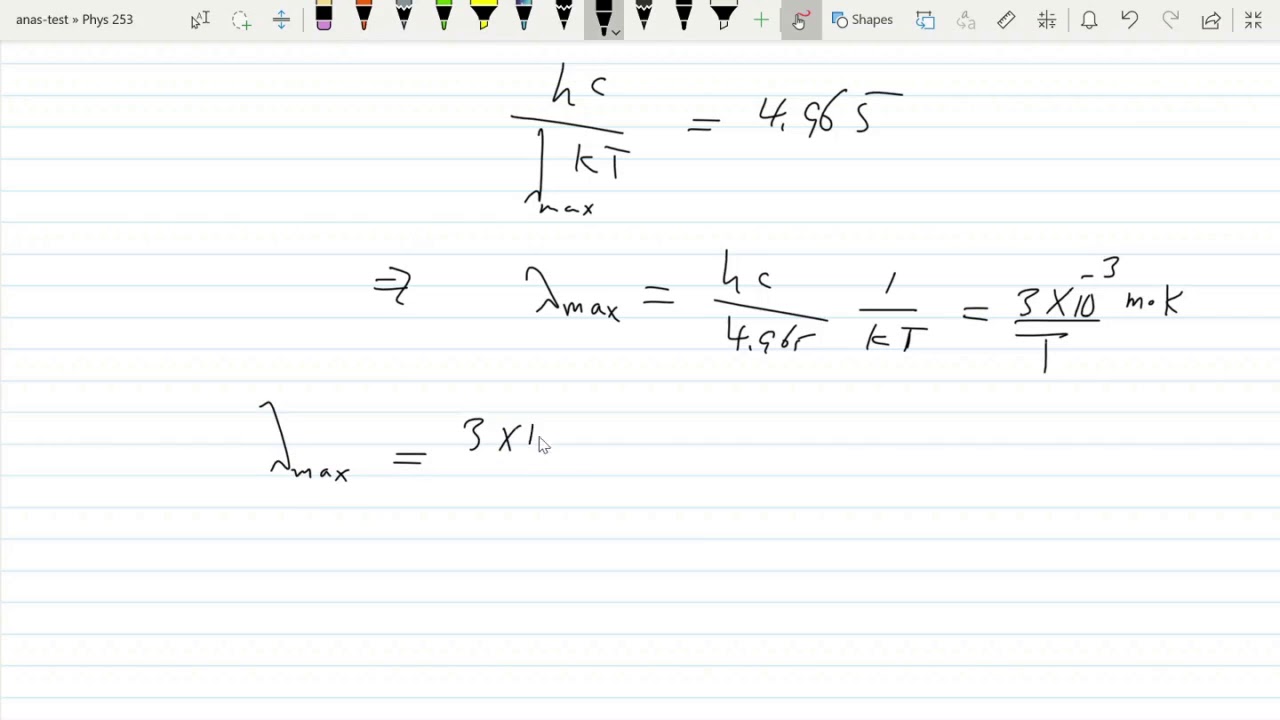 anas-test » Phys 253
Shapes
hc / λmax kT = 4.965
⇒ λmax = hc / 4.965 1 / kT = 3 × 10⁻³ m·K / T
λmax = 3 × 1